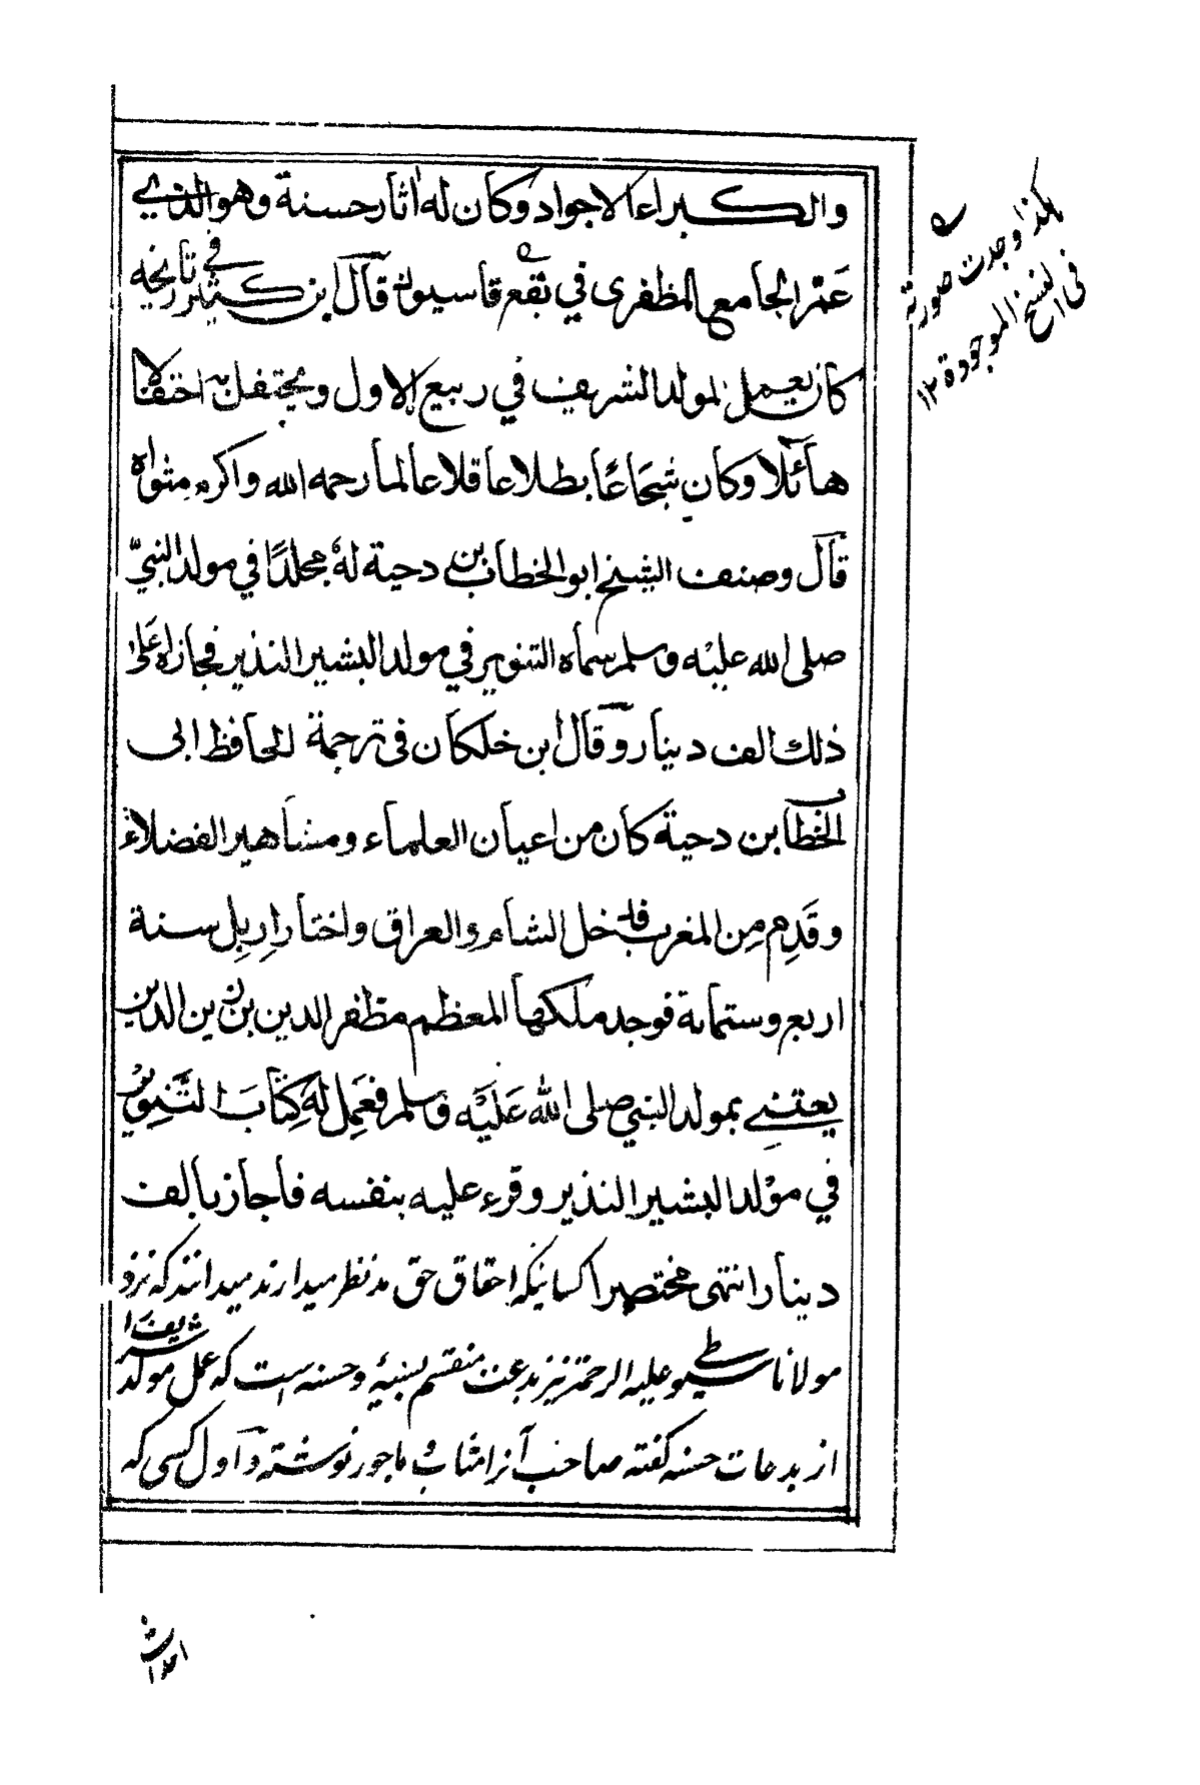 والكبراء الاجواد وكان له اثار حسنة وهو الذي
عَمّر الجامع المظفري في بقع قاسيون قال ابن كثير في تاريخه
كان يعمل المولد الشريف في ربيع الاول ويحتفل به احتفالا
هائلا وكان شجاعًا بطلا عاقلا عالما رحمه الله واكرم مثواه
قال وصنف الشيخ ابو الخطاب بن دحية له مجلدًا في مولد النبيّ
صلى الله عليه وسلم سماه التنوير في مولد البشير النذير فجازاه على
ذلك الف دينار وقال ابن خلكان في ترجمة الحافظ ابى
الخطاب بن دحية كان من اعيان العلماء ومشاهير الفضلاء
وقَدِم مِن المغرب فدخل الشام والعراق واختار اربل سنة
اربع وستماىة فوجد ملكها المعظم مظفر الدين بن زين الدين
يعتني بمولد النبي صلى الله عَلَيْه وسلم فعَمِل لَه كِتَابَ التَّنوير
في موْلد البشير النذير وقرء عليه بنفسه فاجاز بالف
دينار انتهى مختصرا كسانيكه احقاق حق مدنظر ميدارند ميدانند كه نزد
مولانا سيوطي عليه الرحمة نيز بدعت منقسم بسيئه وحسنه است كه عمل مولد شريف را
از بدعات حسنه گفته صاحب آنرا مثاب و ماجور نوشته و اول كسى كه
هكذا وجدت صورته
فى النسخ الموجودة ١٢